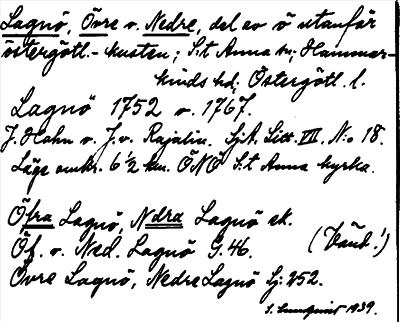 Lagnö, Övre o. Nedre, del av ö utanför
östergötl.-kusten; S:t Anna sn; Hammar-
kinds hd; Östergötl. l.
Lagnö 1752 o. 1767.
J. Hahn o. J. v. Rajalin. SjA. Litt. VII. N:o 18.
Läge omkr. 6 1/2 km. ÖNÖ S:t Anna kyrka.
Öfra Lagnö, Ndra Lagnö ek.
Öf. o. Ned. Lagnö G. 46. (Vänd!)
Övre Lagnö, Nedre Lagnö Sj: 252.
S. Lundqvist 1939.